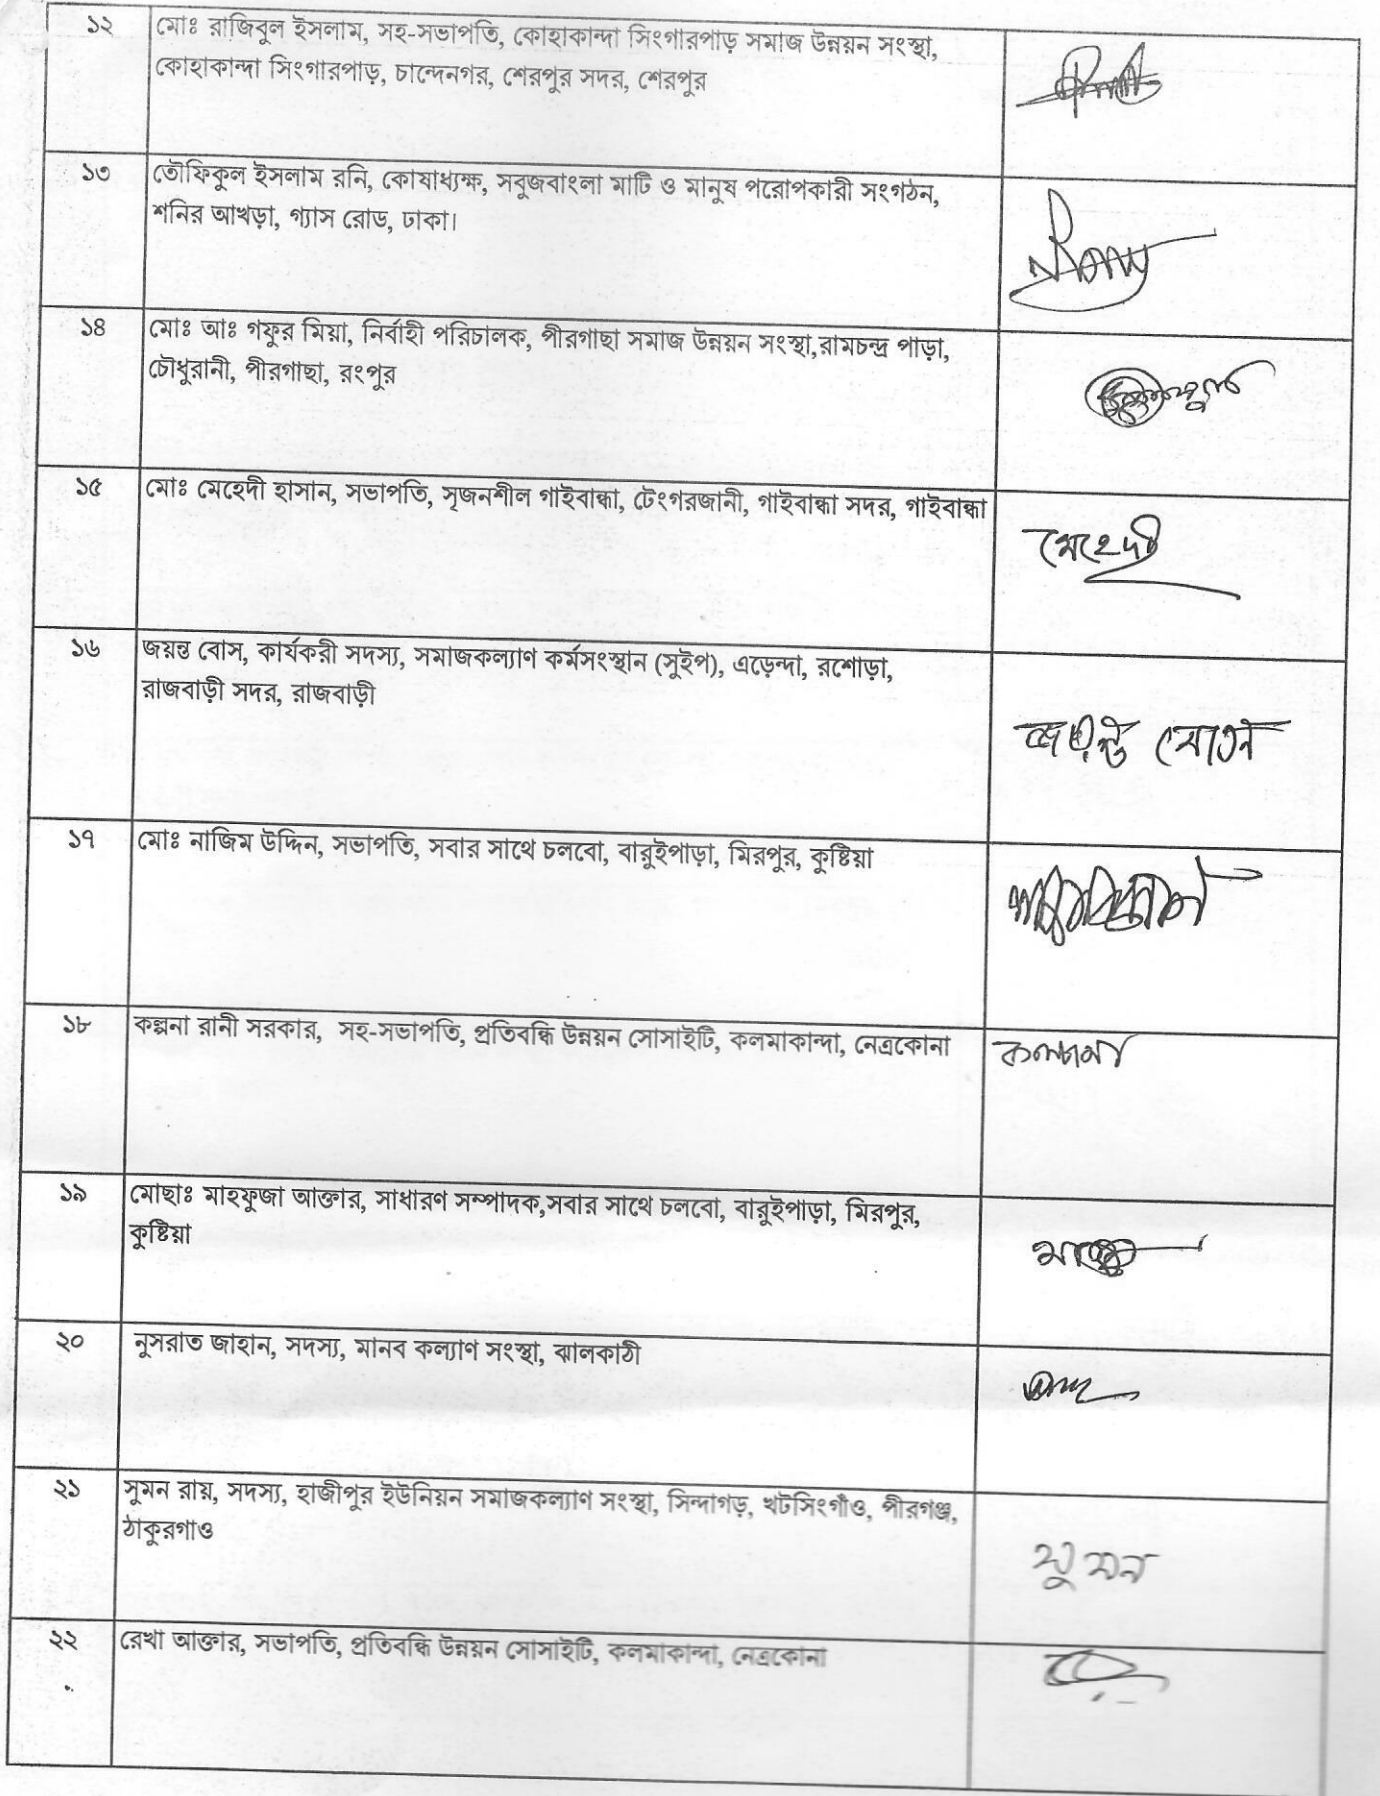 ১২
মোঃ রাজিবুল ইসলাম, সহ-সভাপতি, কোহাকান্দা সিংগারপাড় সমাজ উন্নয়ন সংস্থা,
কোহাকান্দা সিংগারপাড়, চান্দেনগর, শেরপুর সদর, শেরপুর
১৩
তৌফিকুল ইসলাম রনি, কোষাধ্যক্ষ, সবুজবাংলা মাটি ও মানুষ পরোপকারী সংগঠন,
শনির আখড়া, গ্যাস রোড, ঢাকা।
১৪
মোঃ আঃ গফুর মিয়া, নির্বাহী পরিচালক, পীরগাছা সমাজ উন্নয়ন সংস্থা,রামচন্দ্র পাড়া,
চৌধুরানী, পীরগাছা, রংপুর
১৫
মোঃ মেহেদী হাসান, সভাপতি, সৃজনশীল গাইবান্ধা, টেংগরজানী, গাইবান্ধা সদর, গাইবান্ধা
মেহেদী
১৬
জয়ন্ত বোস, কার্যকরী সদস্য, সমাজকল্যাণ কর্মসংস্থান (সুইপ), এড়েন্দা, রশোড়া,
রাজবাড়ী সদর, রাজবাড়ী
জয়ন্ত বোস
১৭
মোঃ নাজিম উদ্দিন, সভাপতি, সবার সাথে চলবো, বারুইপাড়া, মিরপুর, কুষ্টিয়া
১৮
কল্পনা রানী সরকার, সহ-সভাপতি, প্রতিবন্ধি উন্নয়ন সোসাইটি, কলমাকান্দা, নেত্রকোনা
কল্পনা
১৯
মোছাঃ মাহফুজা আক্তার, সাধারণ সম্পাদক,সবার সাথে চলবো, বারুইপাড়া, মিরপুর,
কুষ্টিয়া
২০
নুসরাত জাহান, সদস্য, মানব কল্যাণ সংস্থা, ঝালকাঠী
২১
সুমন রায়, সদস্য, হাজীপুর ইউনিয়ন সমাজকল্যাণ সংস্থা, সিন্দাগড়, খটসিংগাঁও, পীরগঞ্জ,
ঠাকুরগাও
সুমন
২২
রেখা আক্তার, সভাপতি, প্রতিবন্ধি উন্নয়ন সোসাইটি, কলমাকান্দা, নেত্রকোনা